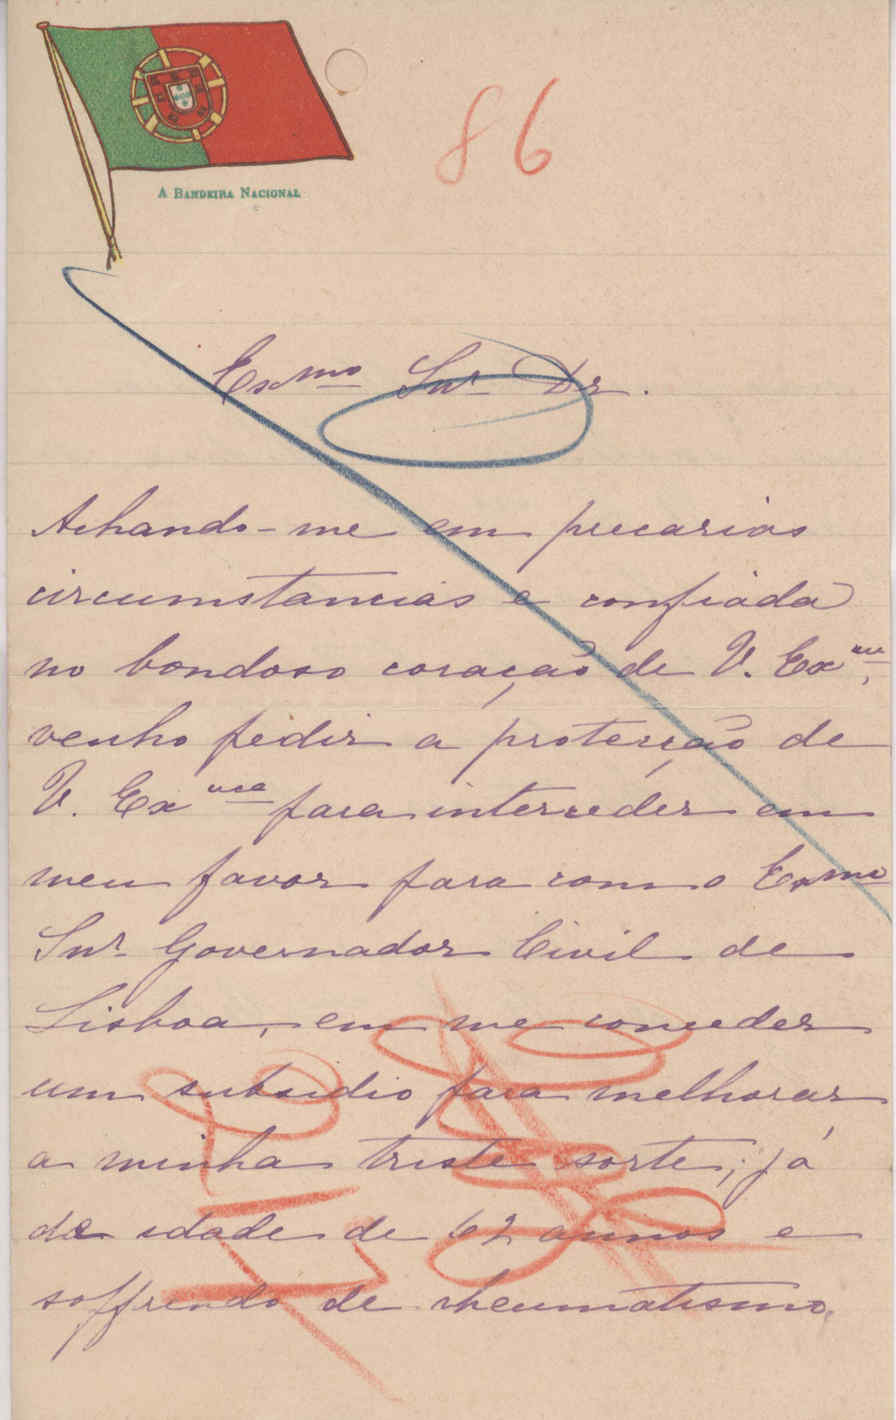 86
A BANDEIRA NACIONAL
Exmo Snr Dr.
Achando-me em precarias
circumstancias e confiada
no bondoso coração de V. Exma,
venho pedir a protecção de
V. Exma para interceder em
meu favor para com o Exmo
Snr Governador Civil de
Lisboa, em me conceder
um subsidio para melhorar
a minha triste sorte, já
de idade de 62 annos e
soffrendo de rheumatismo,